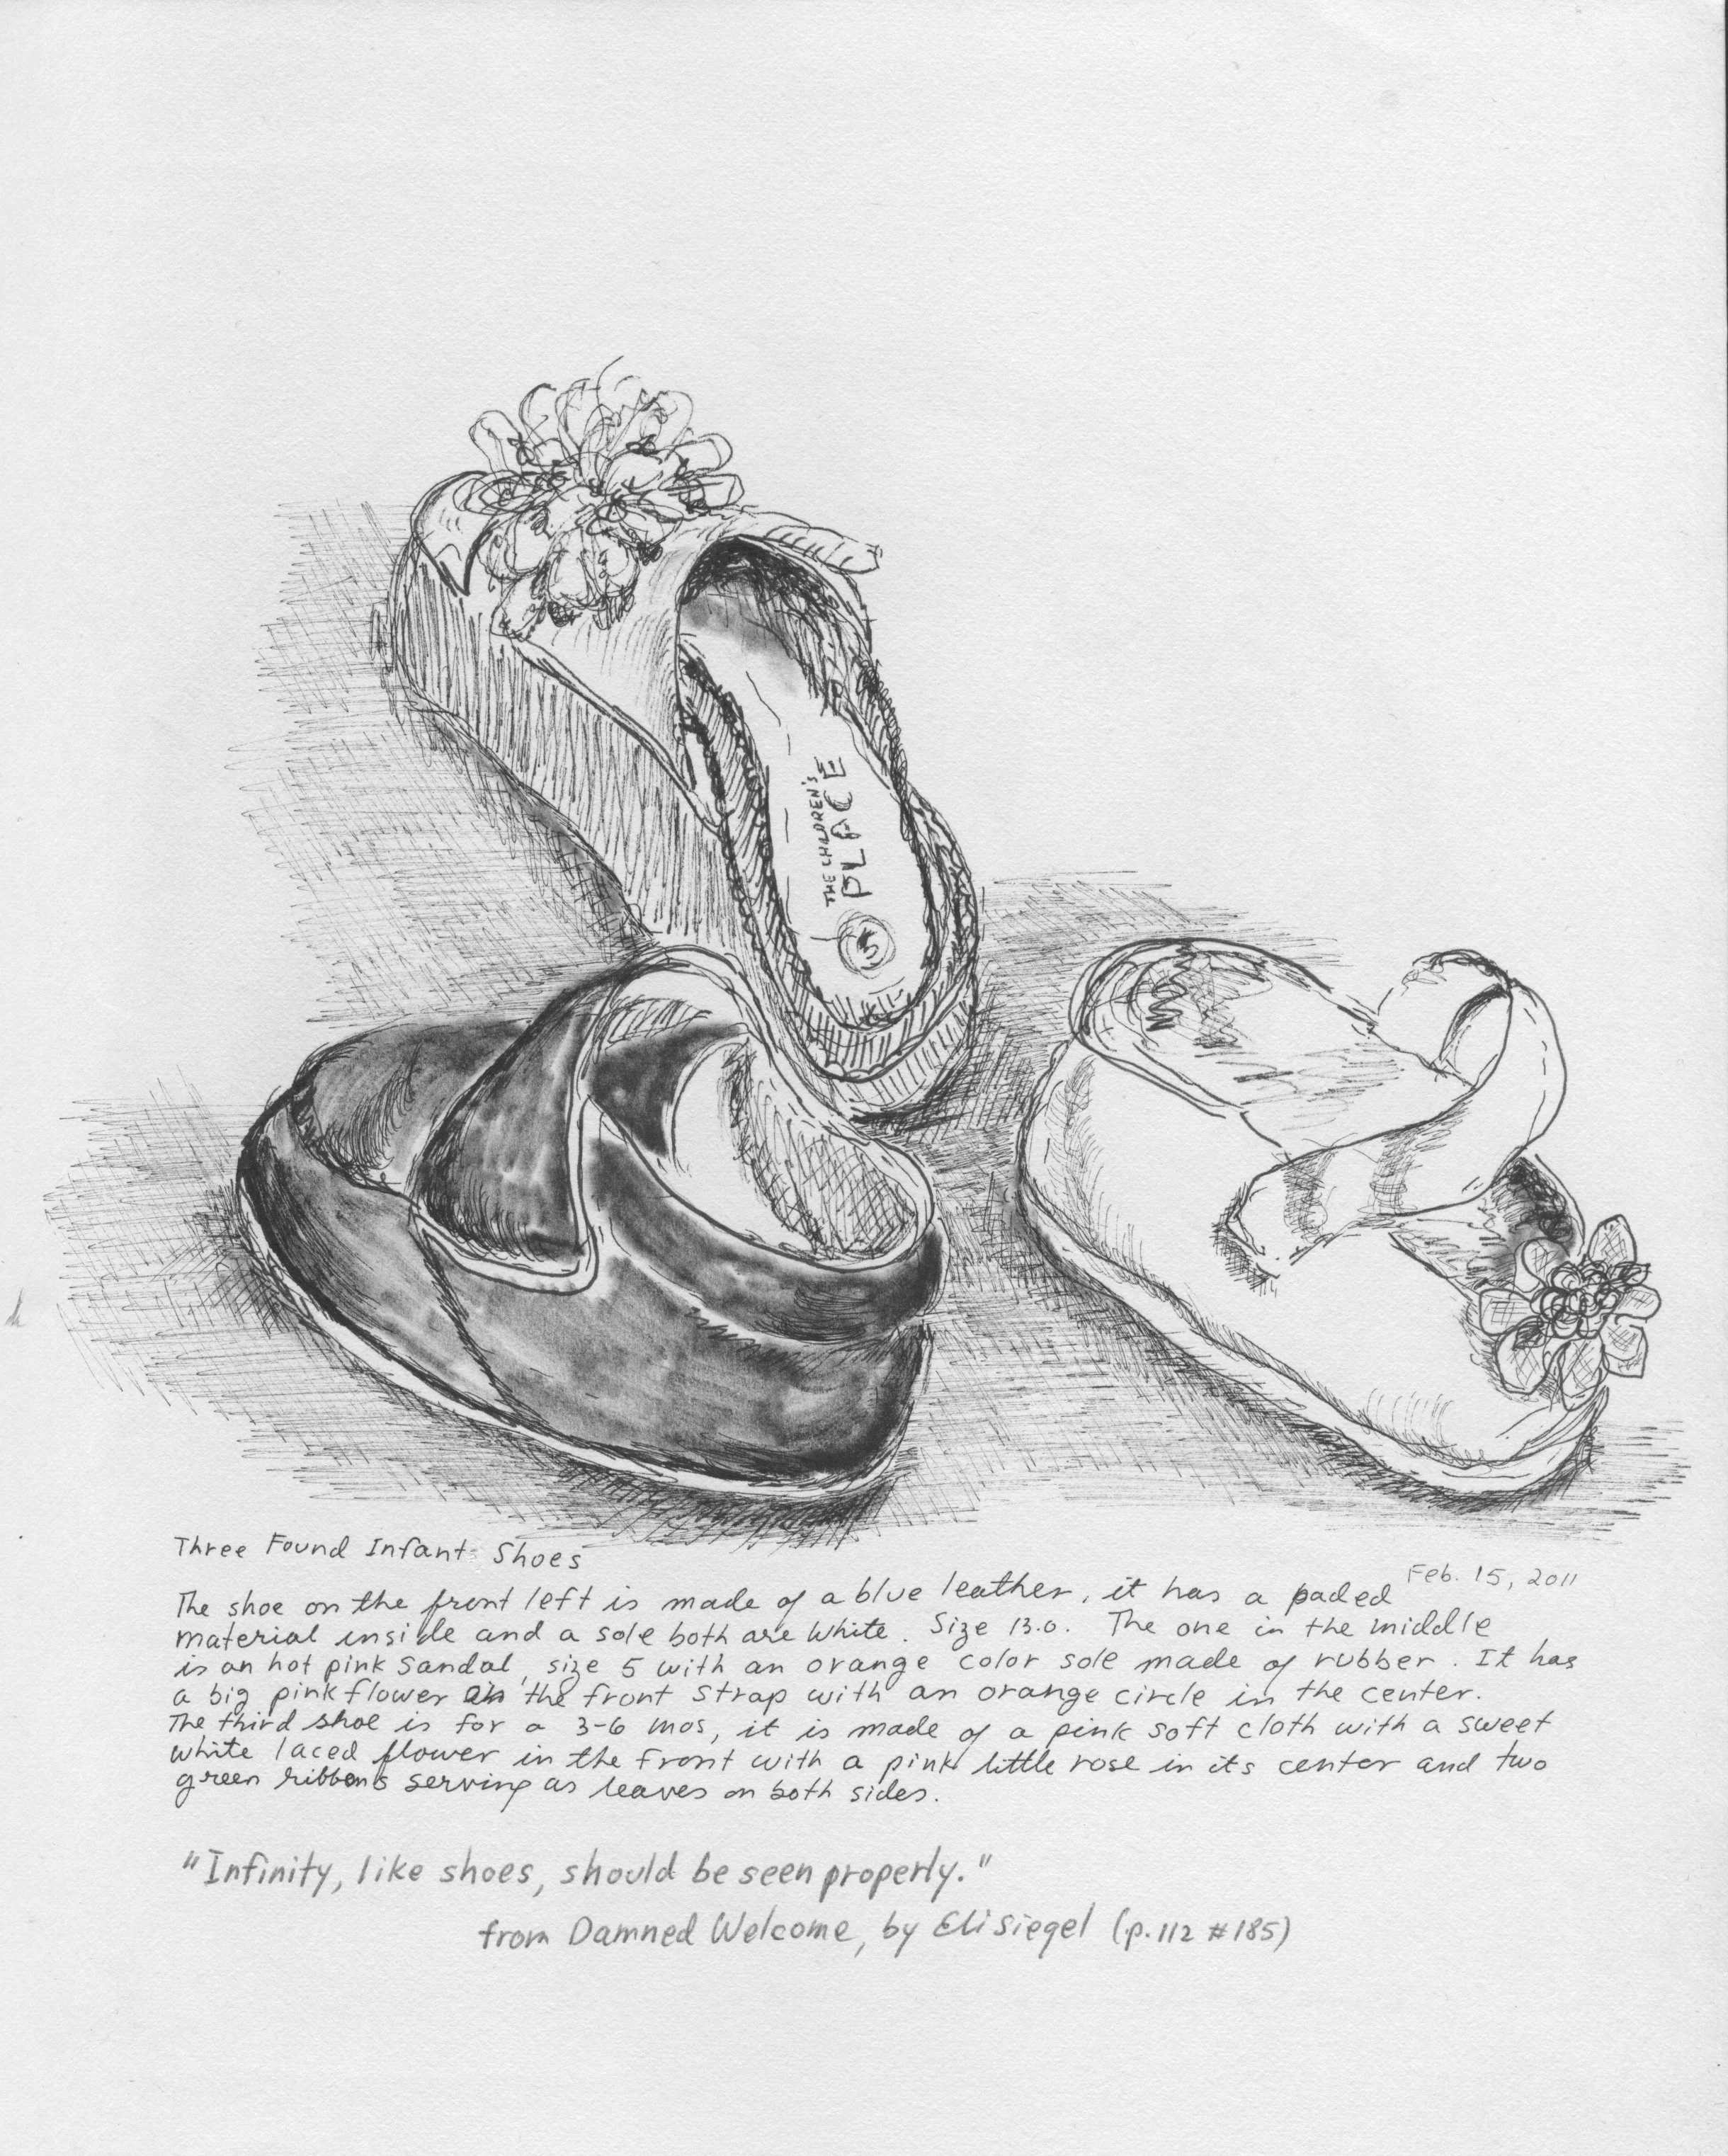 THE CHILDREN'S
PLACE
5
Three Found Infant Shoes
Feb. 15, 2011
The shoe on the front left is made of a blue leather, it has a paded
material inside and a sole both are white. Size 13.0. The one in the middle
is an hot pink sandal, size 5 with an orange color sole made of rubber. It has
a big pink flower on the front strap with an orange circle in the center.
The third shoe is for a 3-6 mos, it is made of a pink soft cloth with a sweet
white laced flower in the front with a pink little rose in its center and two
green ribbons serving as leaves on both sides.
"Infinity, like shoes, should be seen properly."
from Damned Welcome, by Eli Siegel (p. 112 #185)